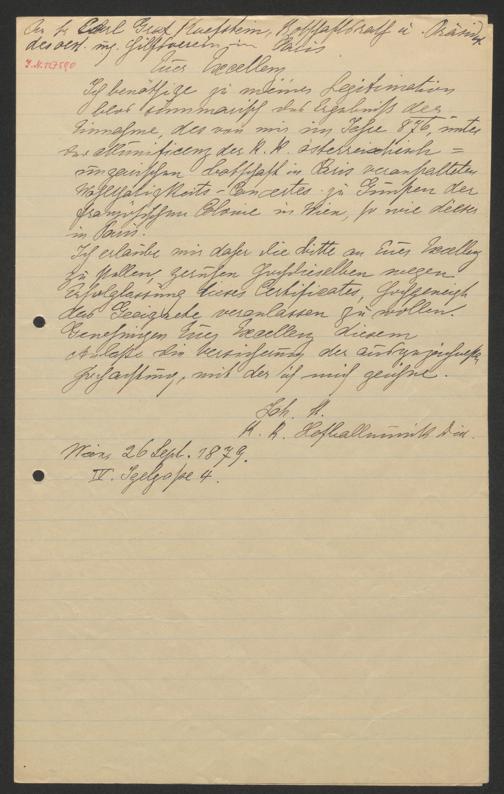 An Gr Carl Graf Kuefstein, Botschaftsrath u. Präsid.
des oest. ung. Hilfsverein, in Paris
I.N. 127590
Euer Excellenz
Ich benöthige zu meiner Legitimation
blos summarisch das Ergebniß der
Einnahme, des von mir im Jahre 876, unter
der Munificenz der K. K. österreichisch =
ungarischen Botschaft in Paris veranstalteten
Wohlthätigkeits-Concertes zu Gunsten der
französischen Colonie in Wien, so wie dieser
in Paris.
Ich erlaube mir daher die Bitte an Euer Excellenz
zu stellen, geruhen Hochdieselben wegen
Erfolglassung dieses Certificates, hochgeneigt
das Geeignete veranlassen zu wollen.
Genehmigen Euer Excellenz diesem
Anlaße die Versicherung der ausgezeichneten
Hochachtung, mit der ich mich zeichne.
Joh. St.
K. K. Hofballmusik Dir.
Wien, 26 Sept. 1879.
IV. Igelgaße 4.